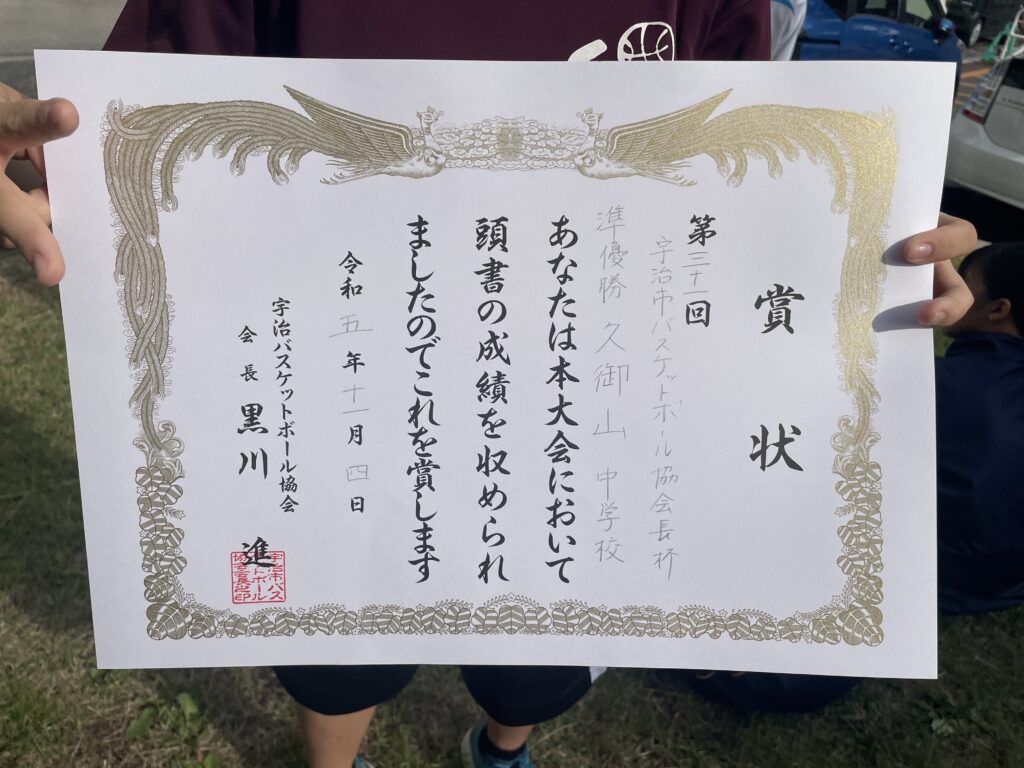 賞状
第三十一回
宇治市バスケットボール協会長杯
準優勝 久御山中学校
あなたは本大会において
頭書の成績を収められ
ましたのでこれを賞します
令和五年十一月四日
宇治バスケットボール協会
会長 黒川 進